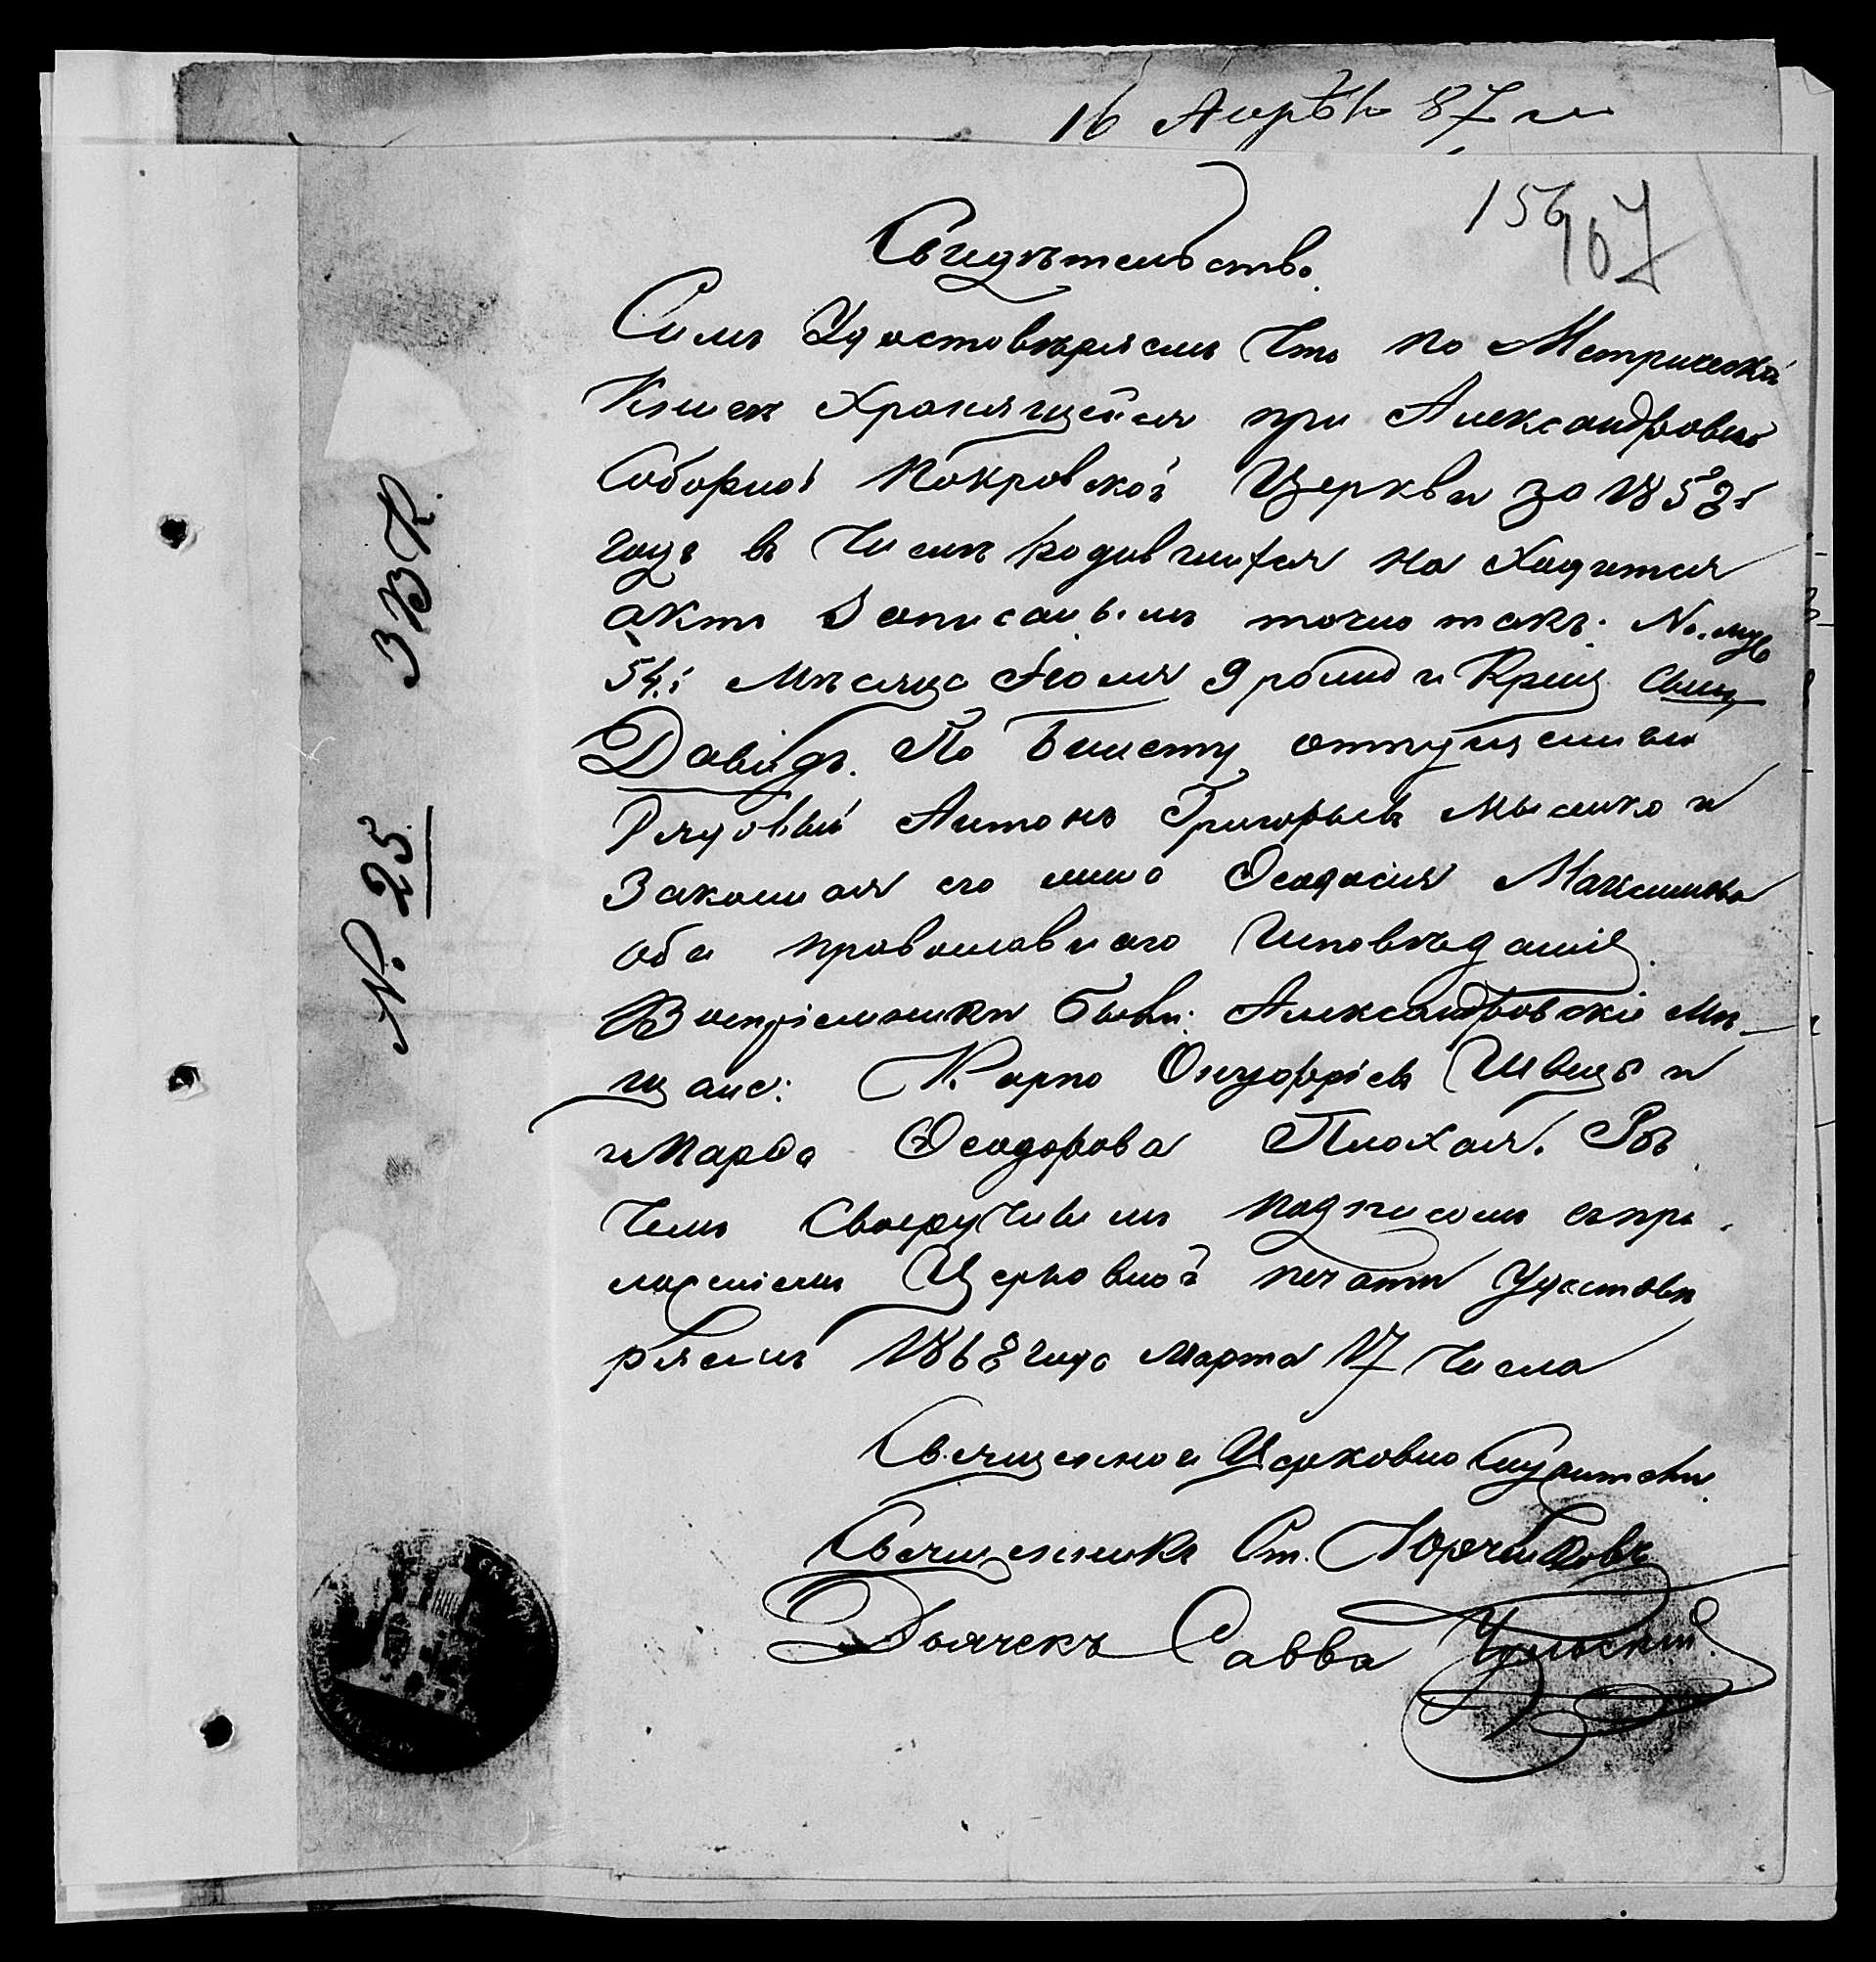 16 Апрѣля 87 г
156
167
Свидѣтельство.
Симъ Удостовѣряемъ Что по Метрической
Книгѣ Хранящейся при Александровской
Соборной Покровской Церкви за 1858й
годъ въ Числѣ Родившихся на Ходится
актъ Записаный точно такъ. No. муж
54.й Мѣсяца Іюля 9 родился и Крещ Сынъ
Давидъ. По билету отпускной
Рядовый Антонъ Григорьевъ Мысико и
Законная его жена Феодосия Максимова
оба православнаго Исповѣданія.
Воспріемники были: Александровскіе Мѣ-
щане: Карпо Онуфріевъ Швецъ и
Марфа Феодорова Плохая. Въ
Чемъ Своеручнымъ подписомъ съ при-
ложеніемъ Церковной печати Удостовѣ
ряемъ 1868 года Марта 17 Числа
Священно и Церковно Служители
Священникъ Ст.
Дьячекъ Савва
№. 25 ЗВК.